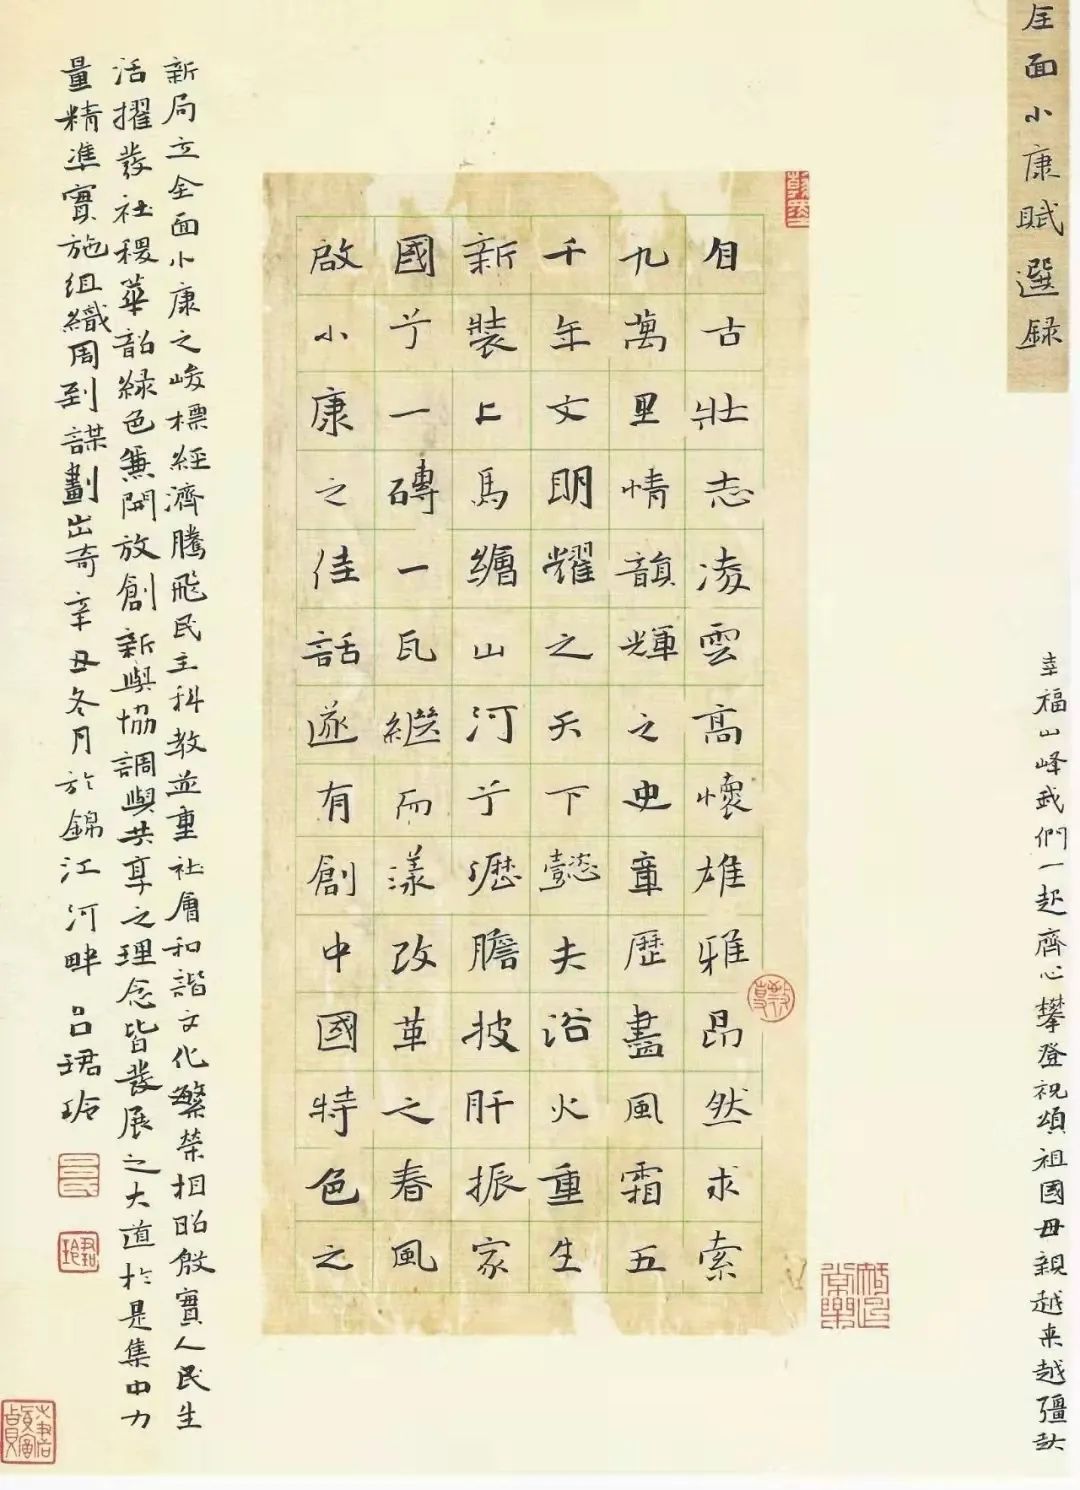 全面小康賦選録
幸福山峰我們一起齊心攀登祝頌祖國母親越来越彊
自古壯志凌雲高懷雄雅昂然求索
九萬里情韻輝之史章歷盡風霜五
千年文明耀之天下懿夫浴火重生
新裝上馬繪山河兮瀝膽披肝振家
國兮一磚一瓦繼而漾改革之春風
啟小康之佳話遂有創中國特色之
新局立全面小康之峻標經濟騰飛民主科教並重社會和諧文化繁榮相昭殷實人民生
活擢發社稷華韶緑色兼開放創新與協調與共享之理念皆發展之大道於是集中力
量精準實施組織周到謀劃出奇辛丑冬月於錦江河畔吕珺玲